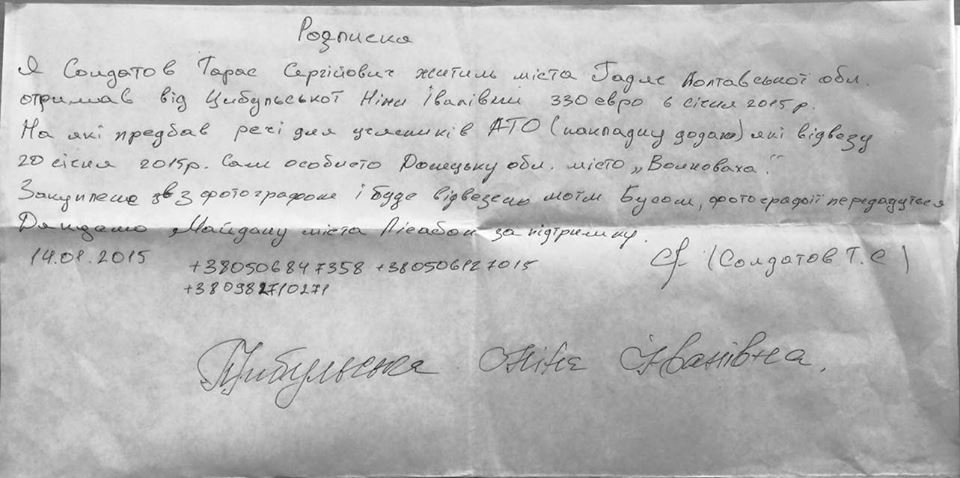 Розписка
Я Солдатов Тарас Сергійович житиль міста Гадяс Полтавської обл.
отримав від Цибульської Ніни Іванівни 330 евро 6 січня 2015р.
На які предбав речі для учасників АТО (накладну додаю) які відвезу
20 січня 2015р. Сам особисто Донецьку обл. місто „Волноваха".
Закуплено фотографом і буде відвезень моїм Бусом, фотографії передадуться
Дякуємо Майдану міста Лісабон за підтримку.
14.01.2015 +380506847358 +380506127015 (Солдатов Т.С)
+380982710271
Цибульська Ніна Іванівна.